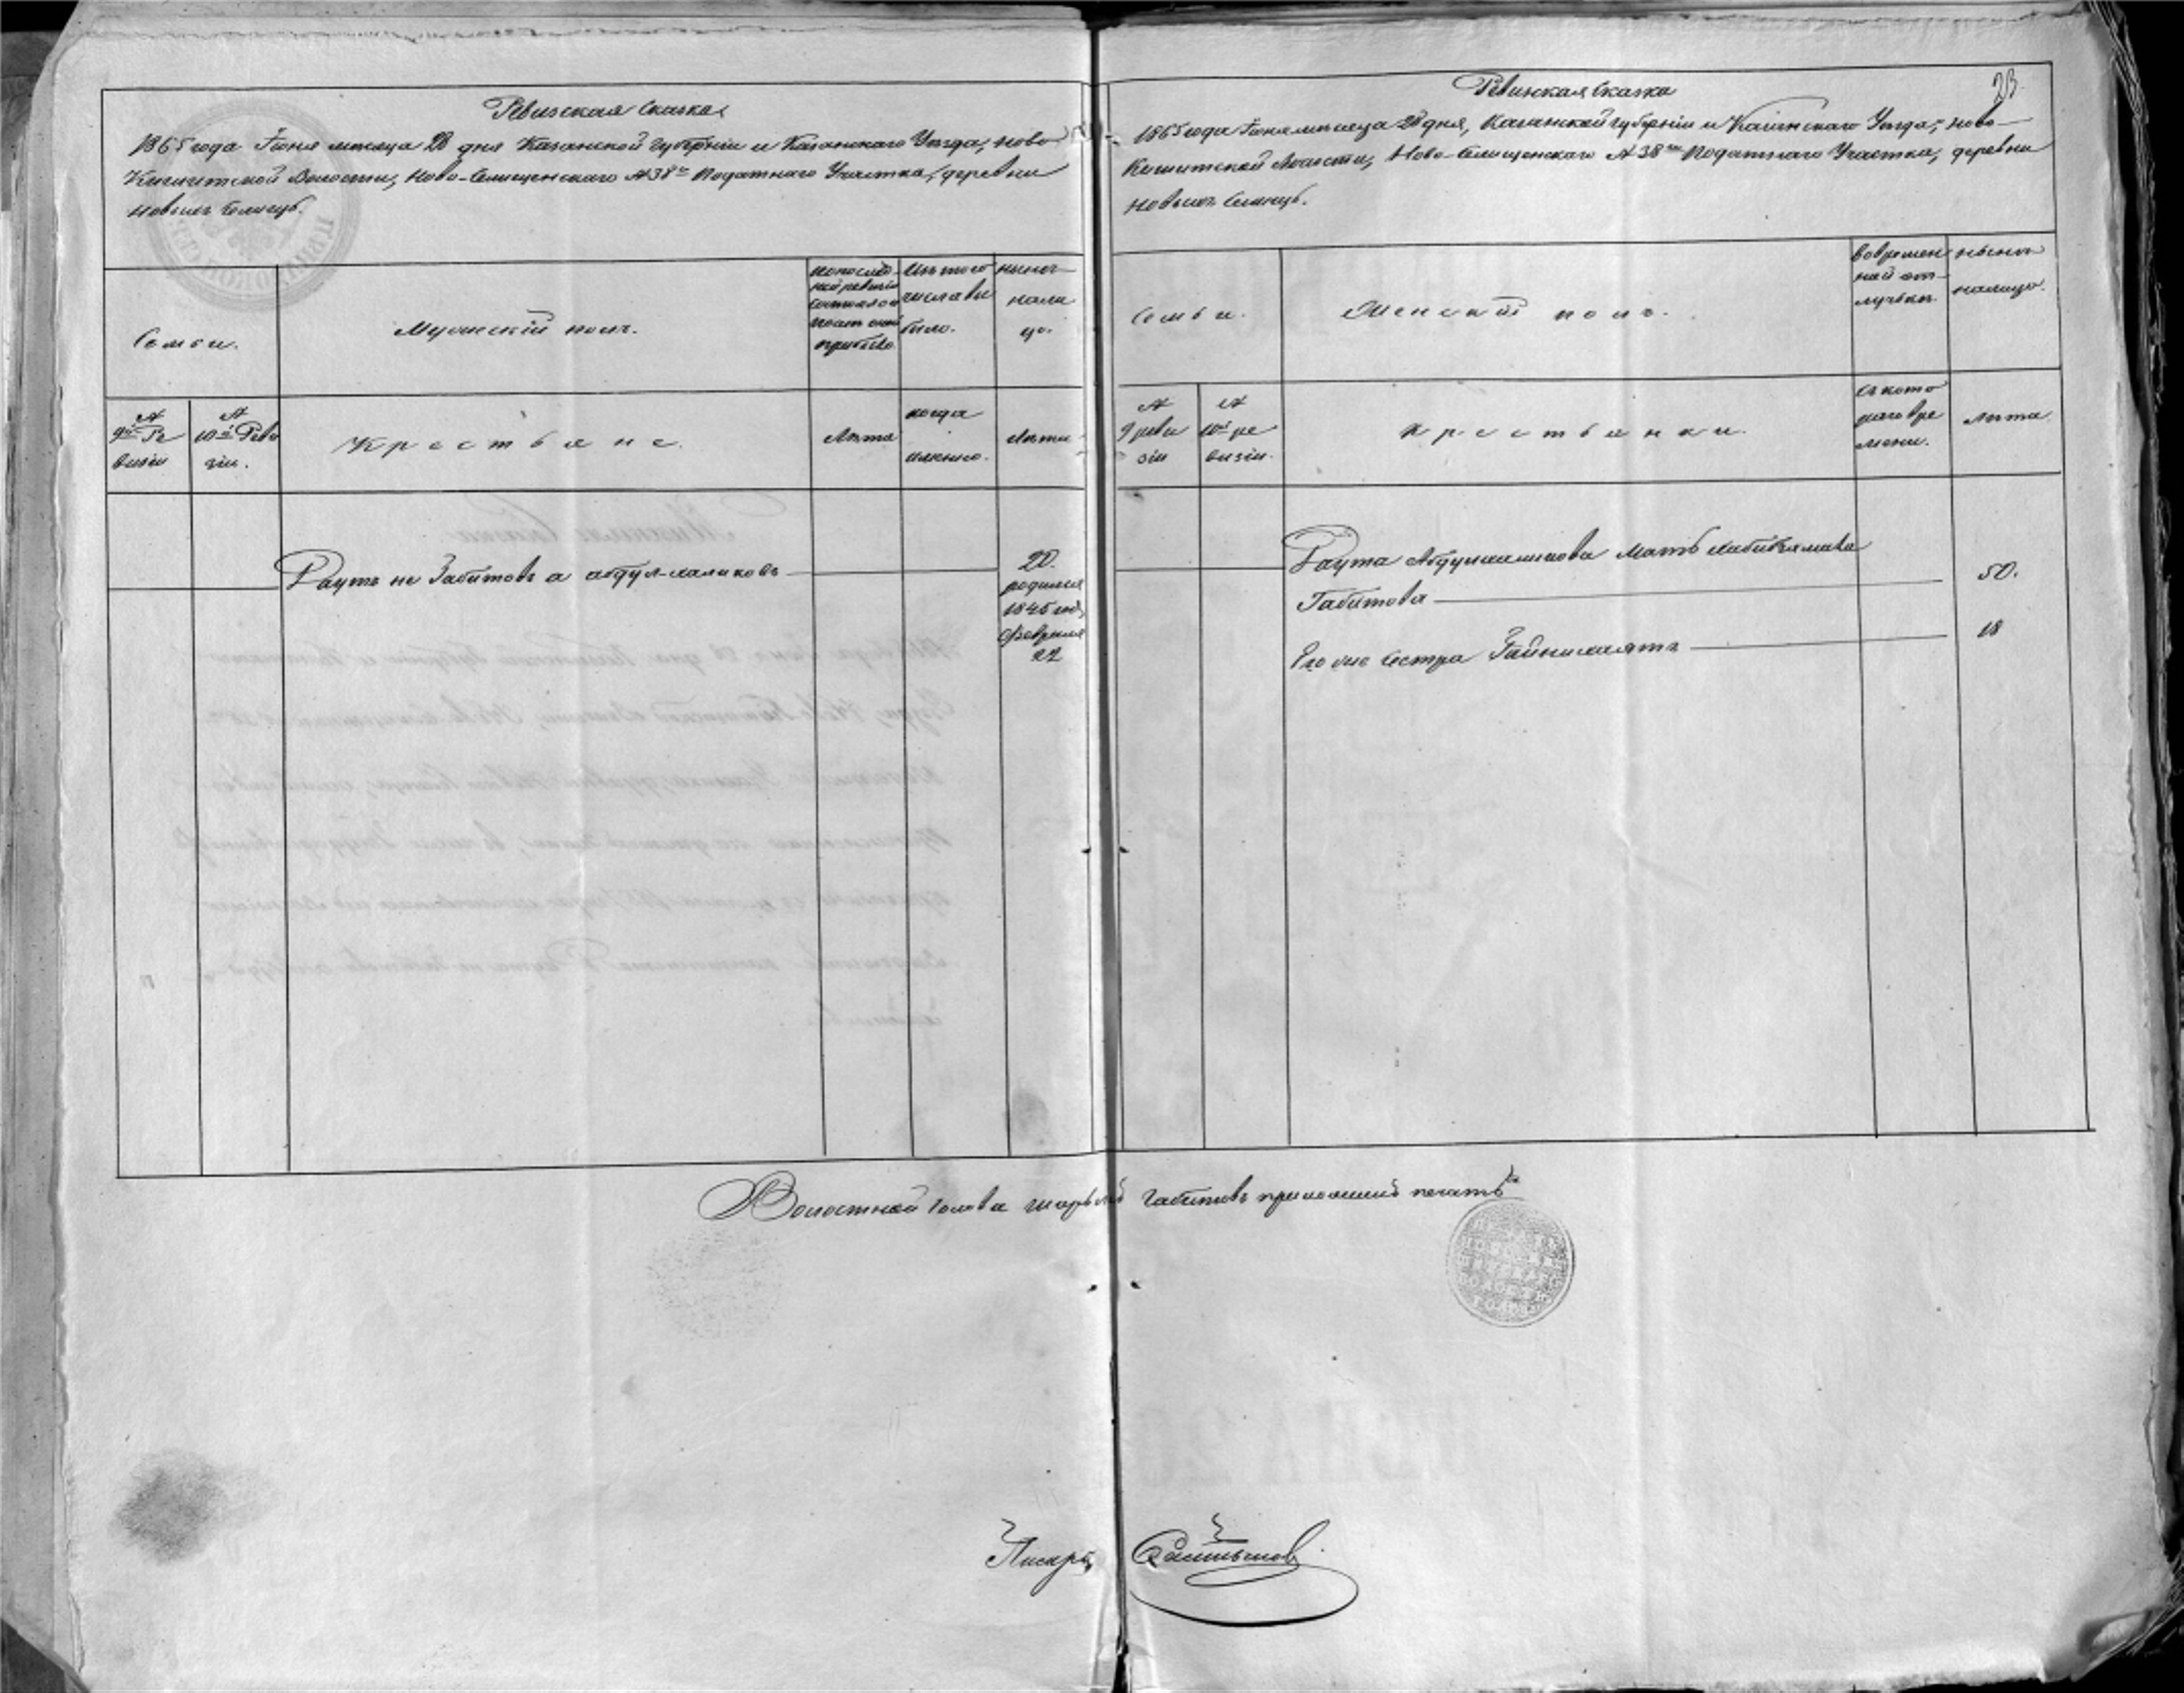 Ревизская сказка
1865 года Іюня мѣсяца 28 дня Казанской Губерніи и Казанскаго Уѣзда, Ново
Кишитской Волости, Ново-Селищенскаго № 38го Податнаго Участка, деревни
Новыхъ Селищъ.
Семьи.
Мужескій полъ.
По послѣд-
ней ревизіи
состояло и
послѣ оной
прибыло
Изъ того
числа вы
было.
нынѣ
нали
цо.
№
9й Ре
визіи
№
10й Реви
зіи.
Крестьяне.
Лѣта
когда
именно.
Лѣта
Раутъ не Забитовъ а абдул-халиковъ
20.
родился
1845 год
Февраля
22
23
Ревизская Сказка
1865 года Іюня мѣсяца 28 дня, Казанской губерніи и Казанскаго Уѣзда, Ново-
Кишитской Волости, Ново-Селищенскаго № 38го Податнаго Участка, деревни
Новыхъ Селищъ.
Семьи.
Женскій полъ.
Во времен
ной от-
лучкѣ.
нынѣ
налицо.
№
9 реви
зіи
№
10й ре
визіи.
Крестьянки.
Съ кото
раго вре
мени.
Лѣта
Раута Абдулхаликова Мать Хабибзямала
Габитова
50.
Его же Сестра Гайнижамятъ
18
Волостной Голова Габитовъ приложилъ печать
Писарь